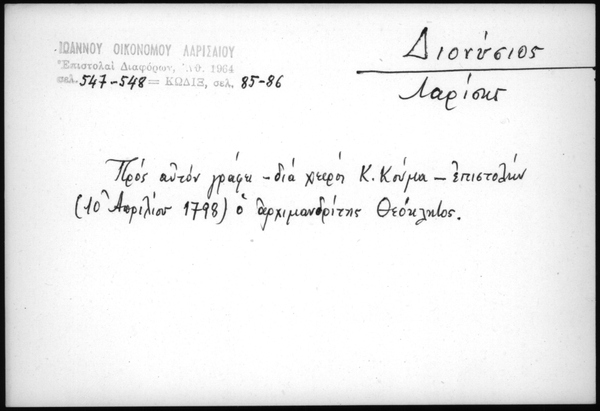 ΙΩΑΝΝΟΥ ΟΙΚΟΝΟΜΟΥ ΛΑΡΙΣΑΙΟΥ
Ἐπιστολαὶ Διαφόρων, Ἀθ. 1964
σελ. 547-548 = ΚΩΔΙΞ, σελ. 85-86
Διονύσιος
Λαρίσης
Πρὸς αὐτὸν γράφει - διὰ χειρὸς Κ. Κούμα - ἐπιστολὴν
(10 Ἀπριλίου 1798) ὁ ἀρχιμανδρίτης Θεόκλητος.